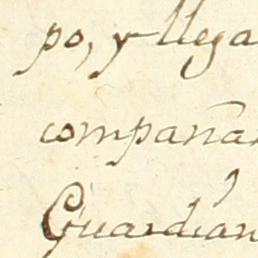 po, y llega
compañar
Guardian